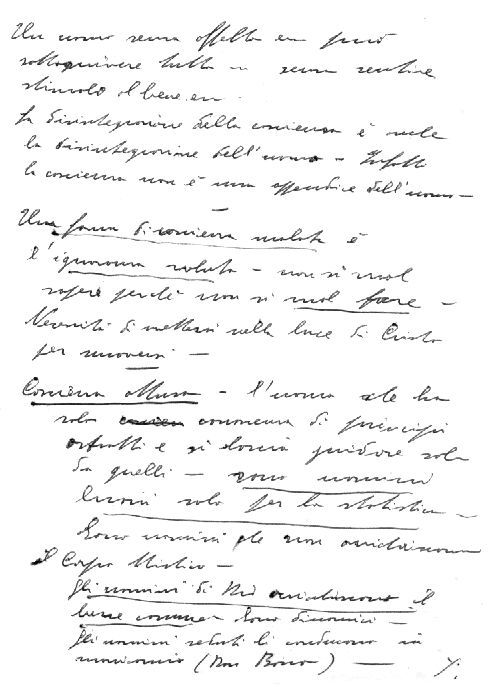 Un uomo senza
tutto senza sentire
stimolo al bene
La disintegrazione della coscienza è
la disintegrazione dell'uomo - Infatti
la coscienza non è una appendice dell'uomo -
Una forma di coscienza malata è
l'ignoranza voluta - non si vuol
sapere perché non si vuol fare -
Necessità di mettersi nella luce di Cristo
per
Coscienza ottusa - l'uomo che ha
solo conoscenza di principi
astratti e si lascia guidare solo
da quelli - sono uomini
buoni solo per la statistica -
Sono uomini che non arricchiscono
il Corpo Mistico -
gli uomini di Dio arricchiscono il
bene comune sono dinamici -
gli uomini seduti li conducono in
manicomio (Don Bosco) -